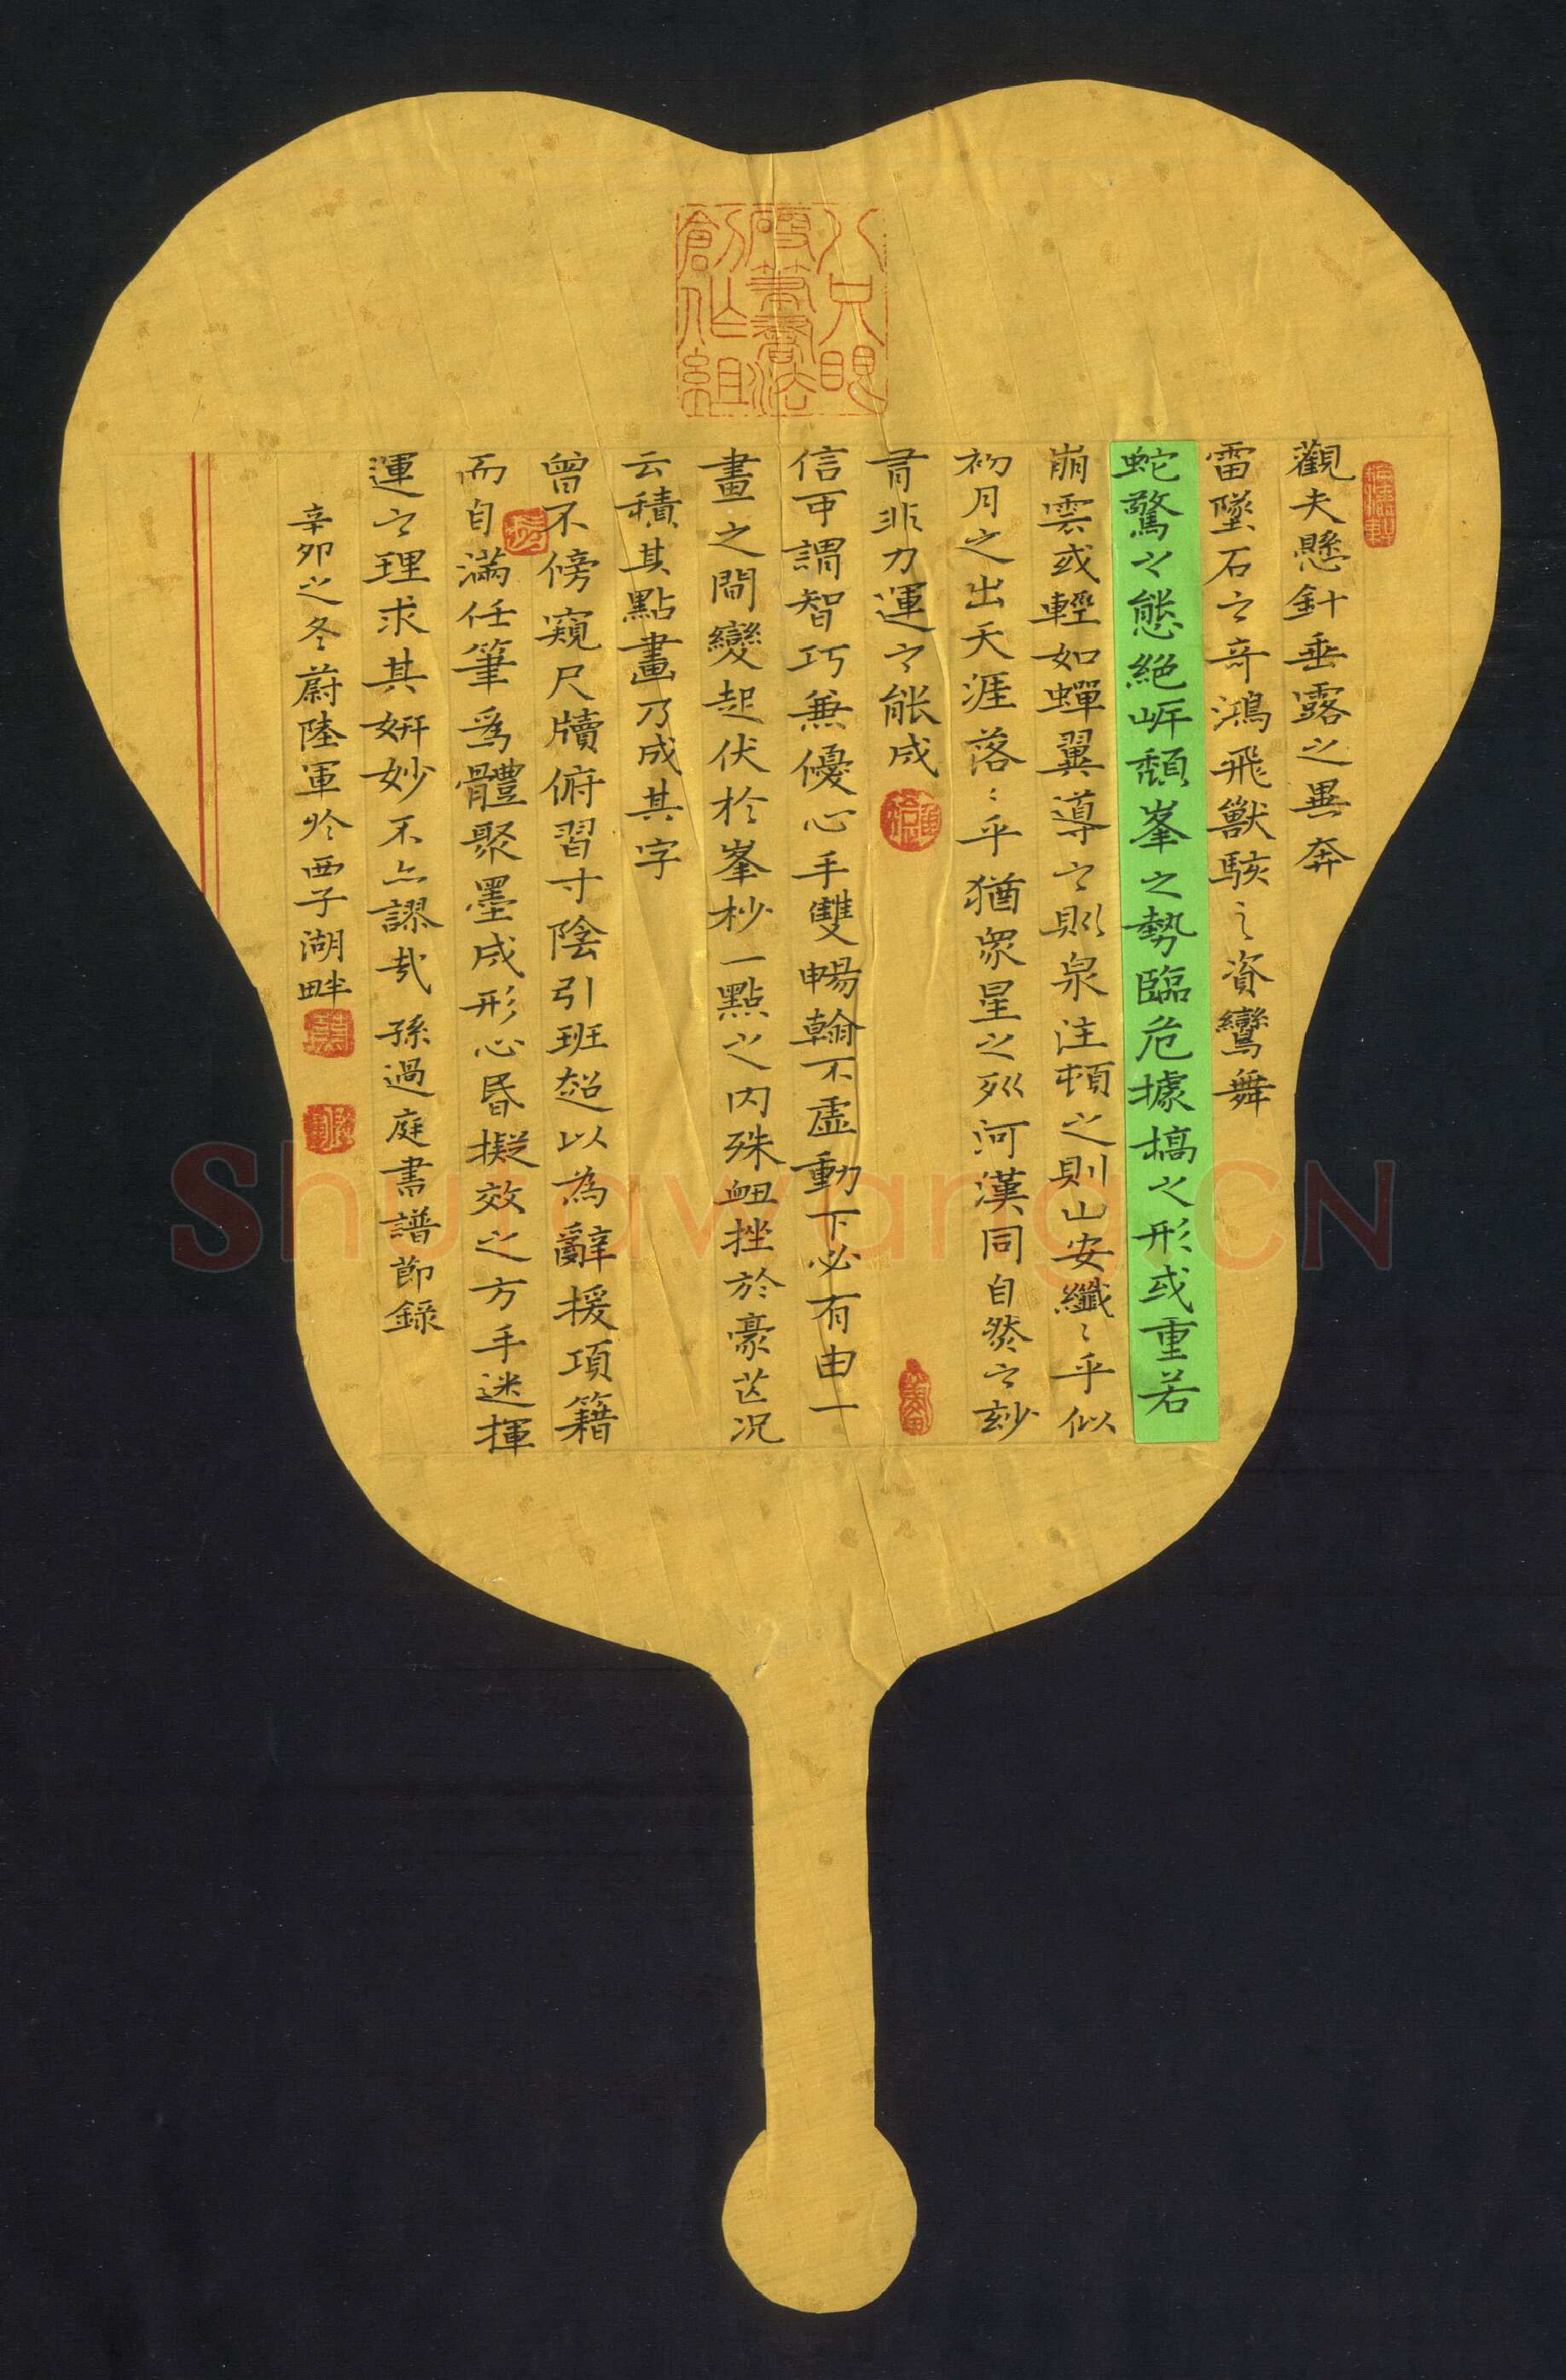 八只眼
硬筆書法
創作組
觀夫懸針垂露之異奔
雷墜石之奇鴻飛獸駭之資鸞舞
蛇驚之態絕岸頹峯之勢臨危據槁之形或重若
崩雲或輕如蟬翼導之則泉注頓之則山安纖〻乎似
初月之出天涯落〻乎猶衆星之列河漢同自然之妙
有非力運之能成
信可謂智巧兼優心手雙暢翰不虛動下必有由一
畫之間變起伏於峯杪一點之内殊衄挫於豪芒况
云積其點畫乃成其字
曾不傍窺尺牘俯習寸陰引班超以為辭援項籍
而自滿任筆爲體聚墨成形心昏擬效之方手迷揮
運之理求其妍妙不亦謬哉 孫過庭書譜節錄
辛卯之冬蔚陸軍於西子湖畔
Shufawang.CN